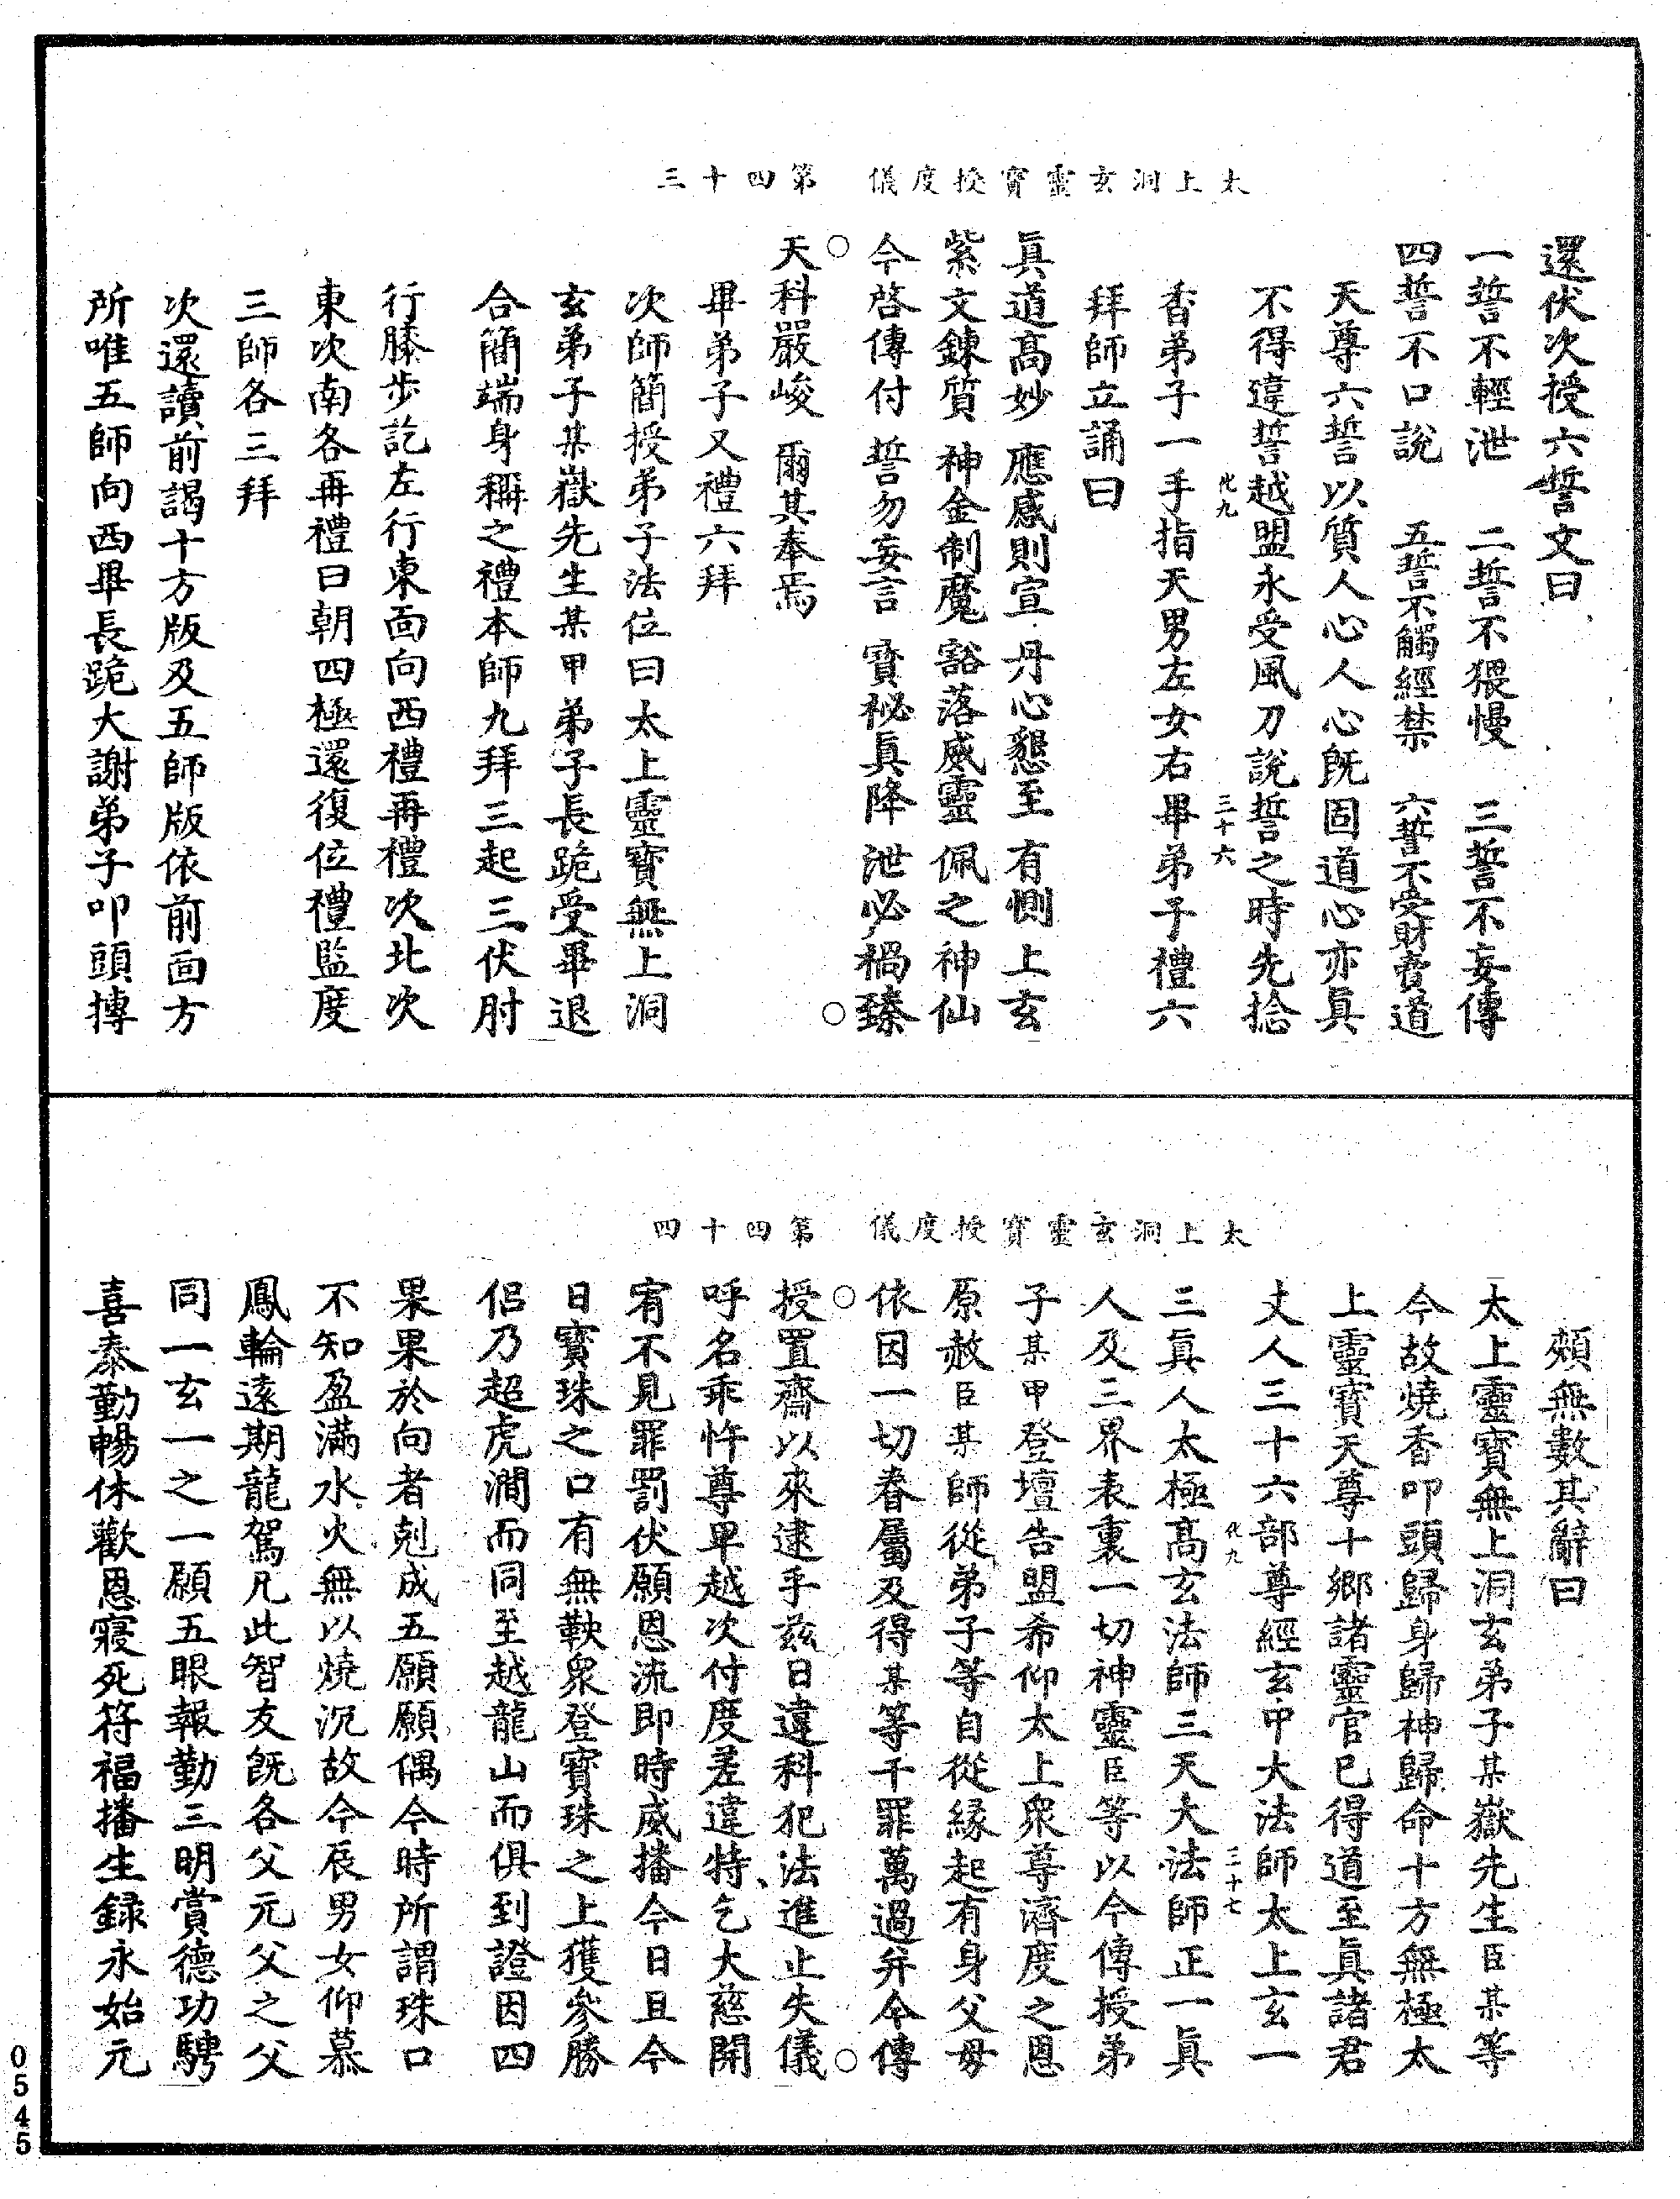 太上洞玄靈寶授度儀　第四十三
還伏次授六誓文曰
一誓不輕泄　二誓不猥慢　三誓不妄傳
四誓不口說　五誓不觸經禁　六誓不受財賣道
天尊六誓以質人心人心旣固道心亦眞
不得違誓越盟永受風刀說誓之時先捻
化九　三十六
香弟子一手指天男左女右畢弟子禮六
拜師立誦曰
眞道高妙　應感則宣　丹心懇至　有惻上玄
紫文鍊質　神金制魔　豁落威靈　佩之神仙
今啓傳付　誓勿妄言　寶祕眞降　泄必禍臻
天科嚴峻　爾其奉焉
畢弟子又禮六拜
次師簡授弟子法位曰太上靈寶無上洞
玄弟子某嶽先生某甲弟子長跪受畢退
合簡端身稱之禮本師九拜三起三伏肘
行膝步訖左行東面向西禮再禮次北次
東次南各再禮曰朝四極還復位禮監度
三師各三拜
次還讀前謁十方版及五師版依前面方
所唯五師向西畢長跪大謝弟子叩頭摶
太上洞玄靈寶授度儀　第四十四
頰無數其辭曰
太上靈寶無上洞玄弟子某嶽先生臣某等
今故燒香叩頭歸身歸神歸命十方無極太
上靈寶天尊十鄉諸靈官已得道至眞諸君
丈人三十六部尊經玄中大法師太上玄一
化九　三十七
三眞人太極高玄法師三天大法師正一眞
人及三界表裏一切神靈臣等以今傳授弟
子某甲登壇告盟希仰太上衆尊濟度之恩
原赦臣某師從弟子等自從緣起有身父母
依因一切眷屬及得某等千罪萬過幷今傳
授置齋以來逮于玆日違科犯法進止失儀
呼名乖忤尊卑越次付度差違特乞大慈開
宥不見罪罰伏願恩流卽時威播今日且今
日寶珠之口有無鞅衆登寶珠之上獲參勝
侶乃超虎澗而同至越龍山而俱到證因四
果果於向者剋成五願願偶今時所謂珠口
不知盈滿水火無以燒沉故今辰男女仰慕
鳳輪遠期龍駕凡此智友旣各父元父之父
同一玄一之一願五眼報勤三明賞德功騁
喜泰勤暢休歡恩寢死符福播生録永始元
0545